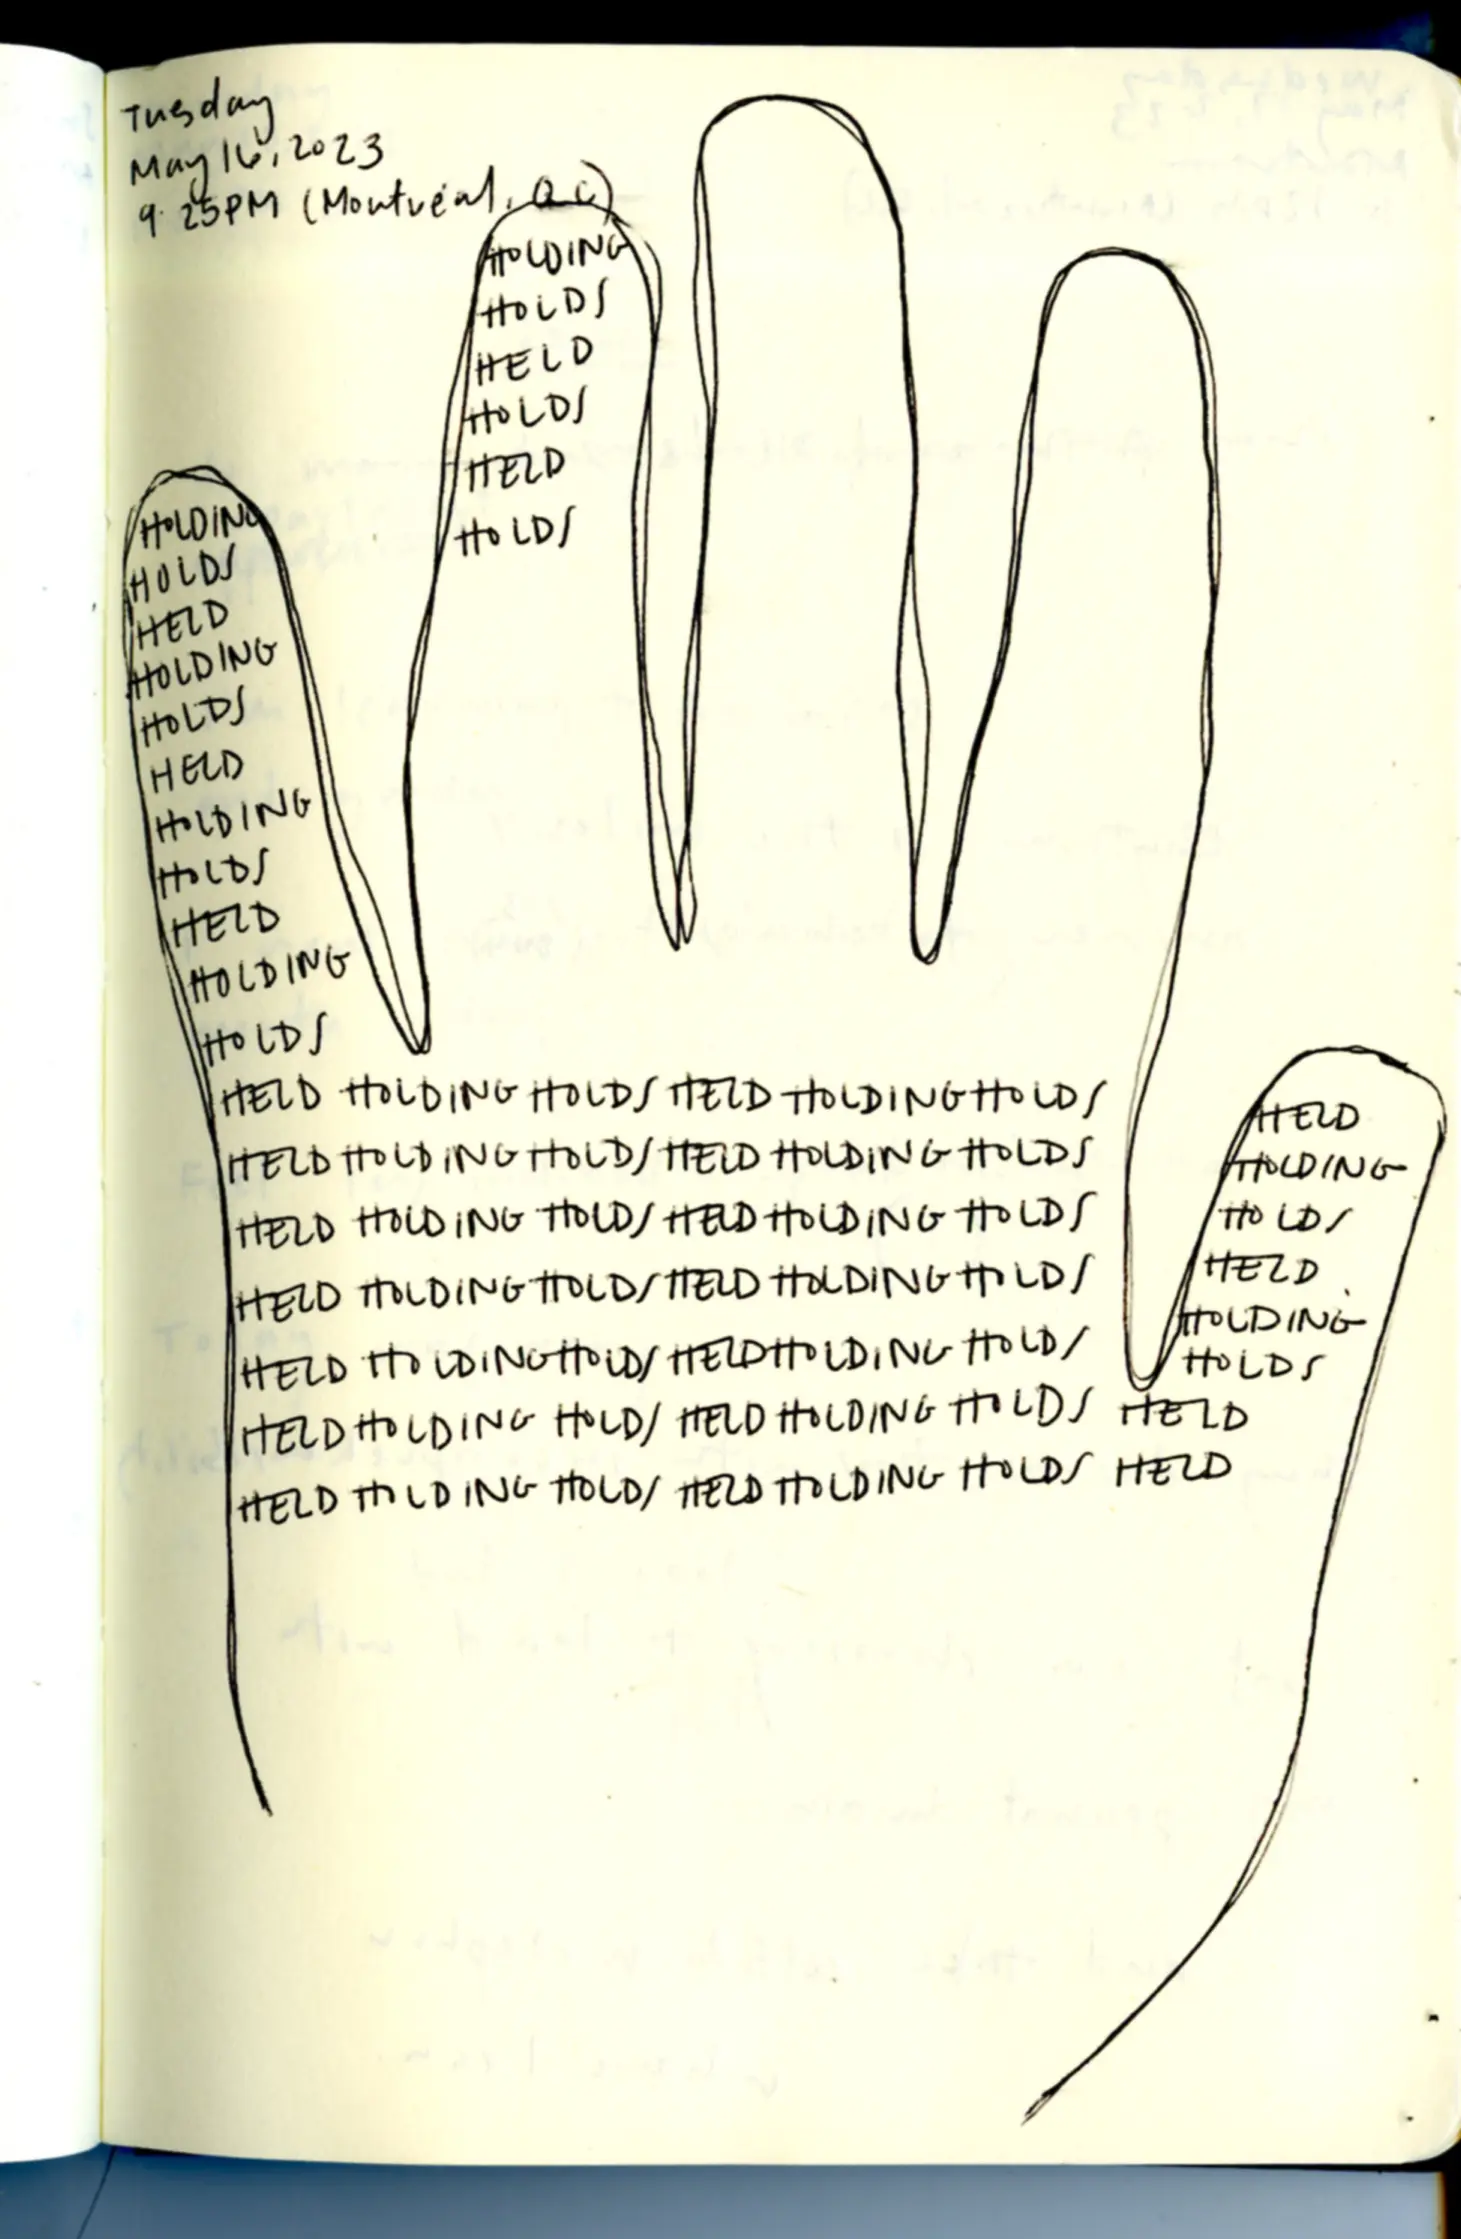 Tuesday
May 16, 2023
9:25PM (Montréal, QC)
HOLDING
HOLDS
HELD
HOLDS
HELD
HOLDS
HOLDING
HOLDS
HELD
HOLDING
HOLDS
HELD
HOLDING
HOLDS
HELD
HOLDING
HOLDS
HELD HOLDING HOLDS HELD HOLDING HOLDS
HELD HOLDING HOLDS HELD HOLDING HOLDS
HELD HOLDING HOLDS HELD HOLDING HOLDS
HELD HOLDING HOLDS HELD HOLDING HOLDS
HELD HOLDING HOLDS HELD HOLDING HOLDS
HELD HOLDING HOLDS HELD HOLDING HOLDS HELD
HELD HOLDING HOLDS HELD HOLDING HOLDS HELD
HELD
HOLDING
HOLDS
HELD
HOLDING
HOLDS